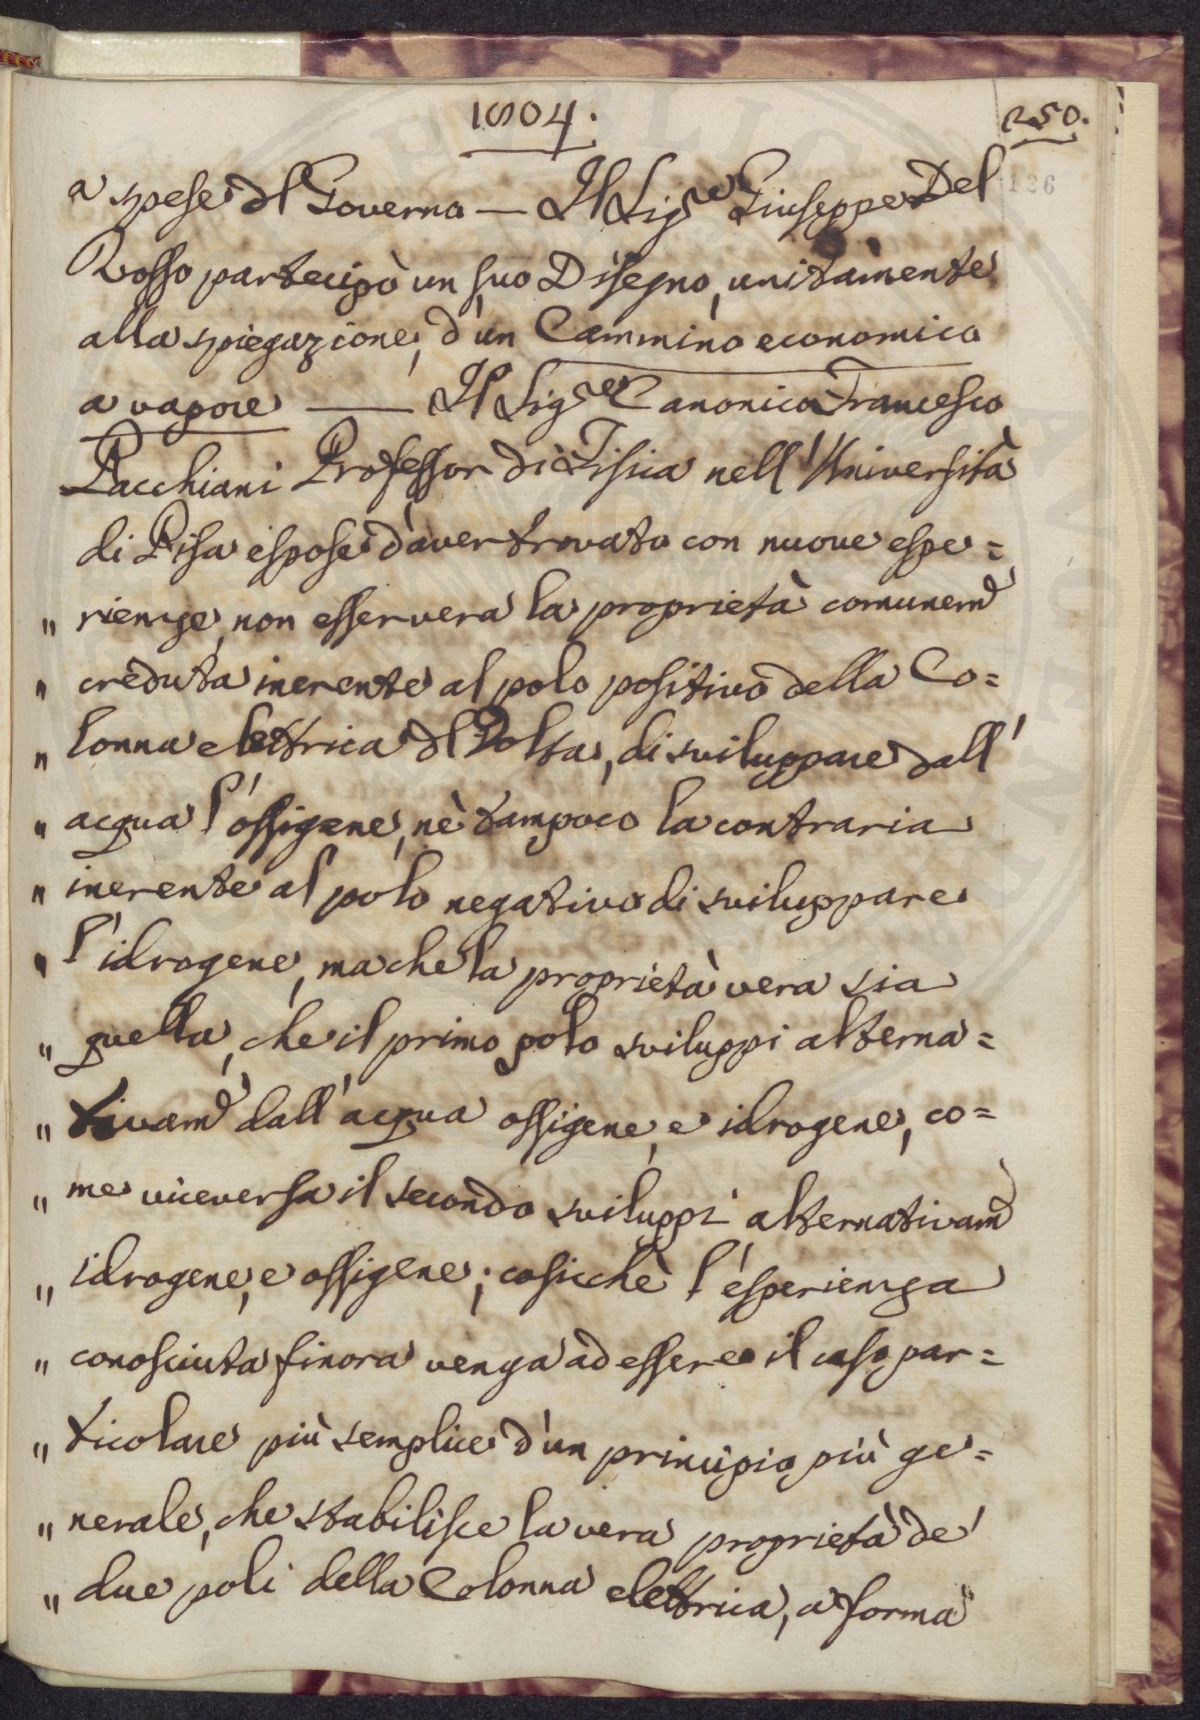 1804.
250.
126
a spese dl Governo — Il Sigre Giuseppe Del
Rosso partecipò un suo Disegno, unitamente
alla spiegazione, d'un Cammino economico
a vapore — Il Sigre Canonico Francesco
Pacchiani Professor di Fisica nell'Università
di Pisa espose d'aver trovato con nuove espe=
" rienze, non esser vera la proprietà comunemte
" creduta inerente al polo positivo della Co=
" lonna elettrica dl Volta, di sviluppare dall'
" acqua l'ossigene, nè tampoco la contraria
" inerente al polo negativo di sviluppare
" l'idrogene, ma che la proprietà vera sia
" quella, che il primo polo sviluppi alterna=
" tivamte dall'acqua ossigene, e idrogene, co=
" me viceversa il secondo sviluppi alternativamte
" idrogene, e ossigene; cosicchè l'esperienza
" conosciuta finora venga ad essere il caso par=
" ticolare più semplice d'un principio più ge=
" nerale, che stabilisce la vera proprietà de'
" due poli della Colonna elettrica, a forma